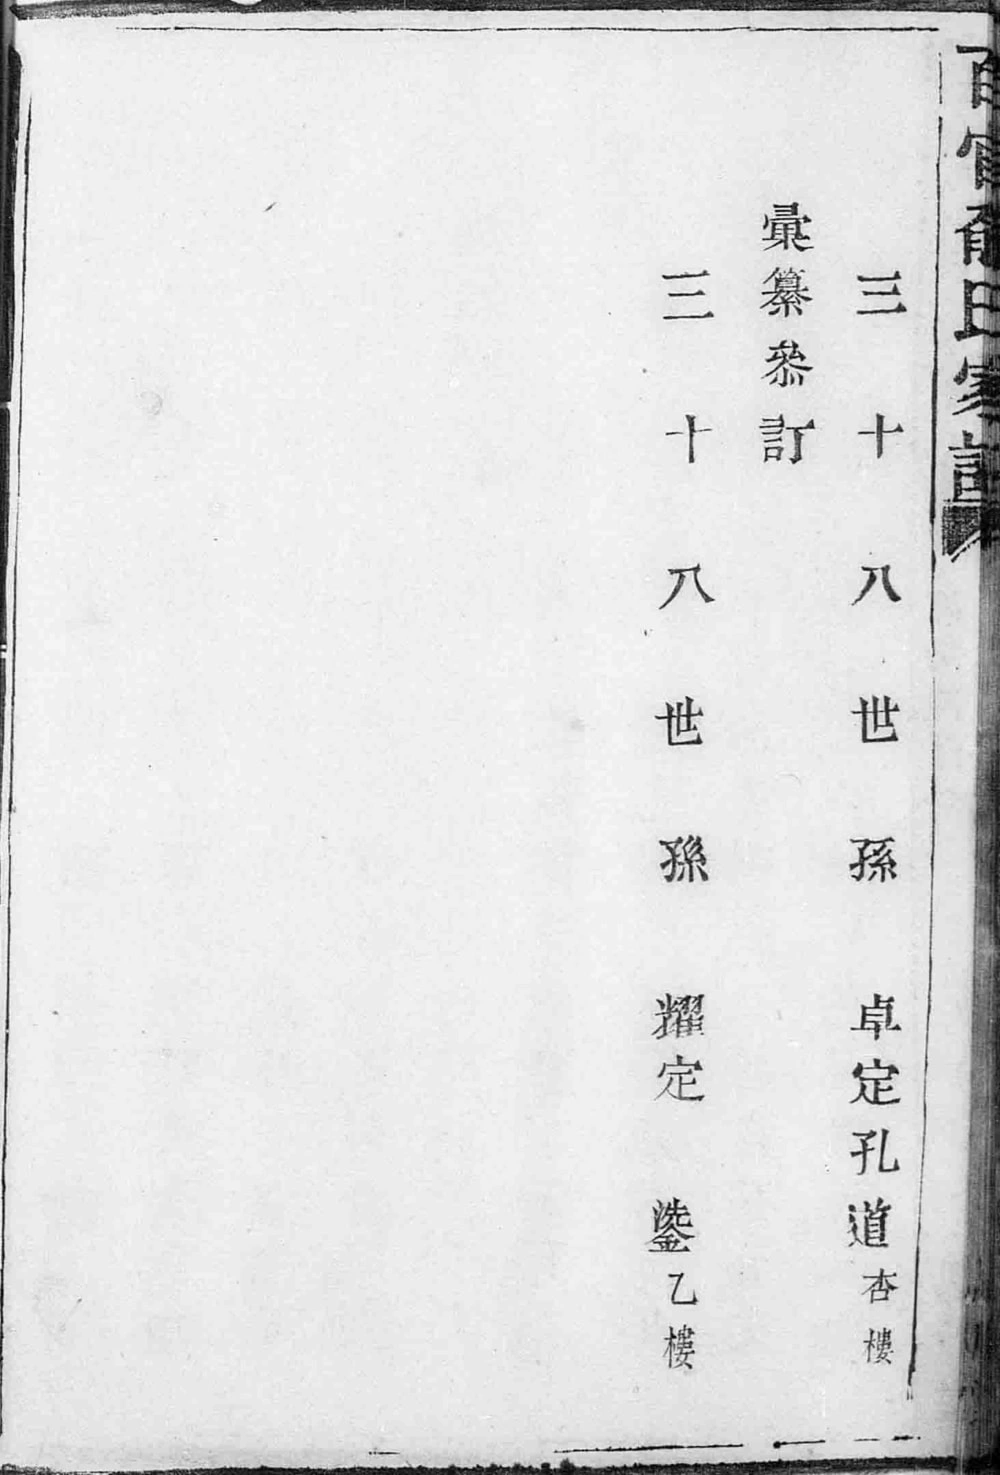 百官俞氏家譜
三十八世孫 卓定孔道杏樓
彙纂叅訂
三十八世孫 耀定 鎏乙樓